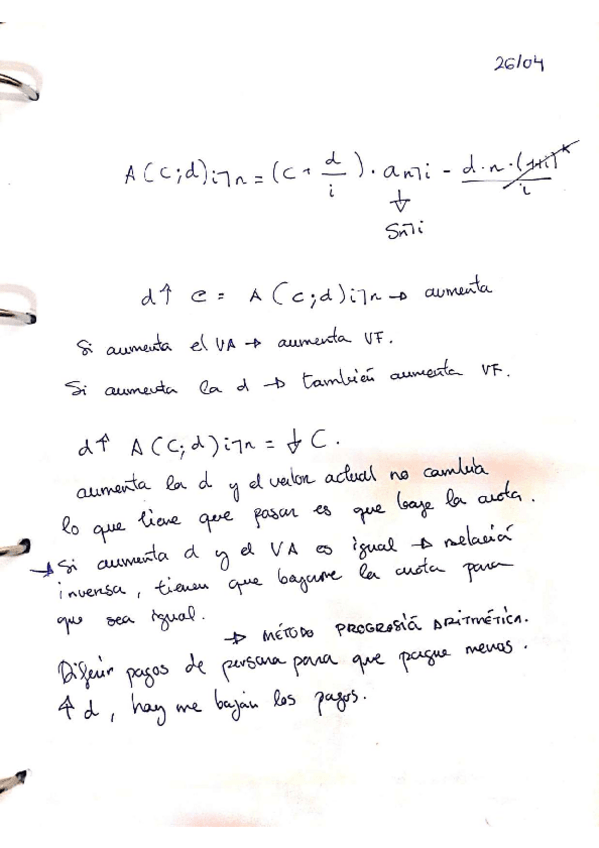 26/04
A(c;d)i¬n = (c + d/i) · an¬i - d·n·(1+i)^k/i
↓
Sn¬i
d↑ c = A(c;d)i¬n → aumenta
Si aumenta el VA → aumenta VF.
Si aumenta la d → también aumenta VF.
d↑ A(C;d)i¬n = ↓ C.
aumenta la d y el valor actual no cambia
lo que tiene que pasar es que baje la cuota.
→ Si aumenta d y el VA es igual → relació
inversa, tienen que bajarme la cuota para
que sea igual.
→ MÉTODO PROGRESIÓ ARITMÉTICA.
Diferir pagos de persona para que pague menos.
↑ d, hay me bajan los pagos.